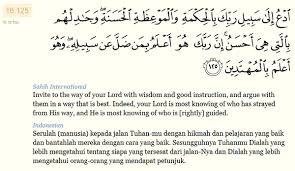 16:125
ٱدْعُ إِلَىٰ سَبِيلِ رَبِّكَ بِٱلْحِكْمَةِ وَٱلْمَوْعِظَةِ ٱلْحَسَنَةِ ۖ وَجَـٰدِلْهُم
بِٱلَّتِى هِىَ أَحْسَنُ ۚ إِنَّ رَبَّكَ هُوَ أَعْلَمُ بِمَن ضَلَّ عَن سَبِيلِهِۦ ۖ وَهُوَ
أَعْلَمُ بِٱلْمُهْتَدِينَ ١٢٥
Sahih International
Invite to the way of your Lord with wisdom and good instruction, and argue with
them in a way that is best. Indeed, your Lord is most knowing of who has strayed
from His way, and He is most knowing of who is [rightly] guided.
Indonesian
Serulah (manusia) kepada jalan Tuhan-mu dengan hikmah dan pelajaran yang baik
dan bantahlah mereka dengan cara yang baik. Sesungguhnya Tuhanmu Dialah yang
lebih mengetahui tentang siapa yang tersesat dari jalan-Nya dan Dialah yang lebih
mengetahui orang-orang yang mendapat petunjuk.